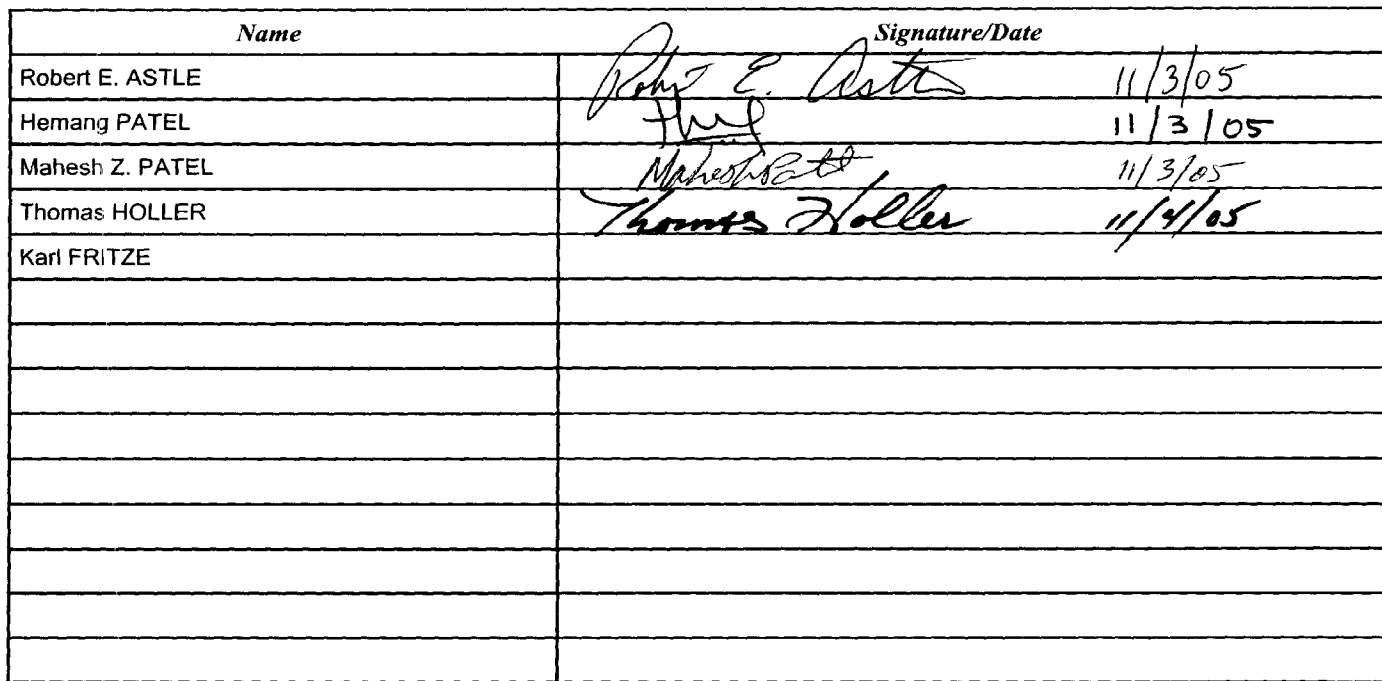 Name Signature/Date
Robert E. ASTLE Robert E. Astle 11/3/05
Hemang PATEL 11/3/05
Mahesh Z. PATEL Mahesh Patel 11/3/05
Thomas HOLLER Thomas Holler 11/4/05
Karl FRITZE